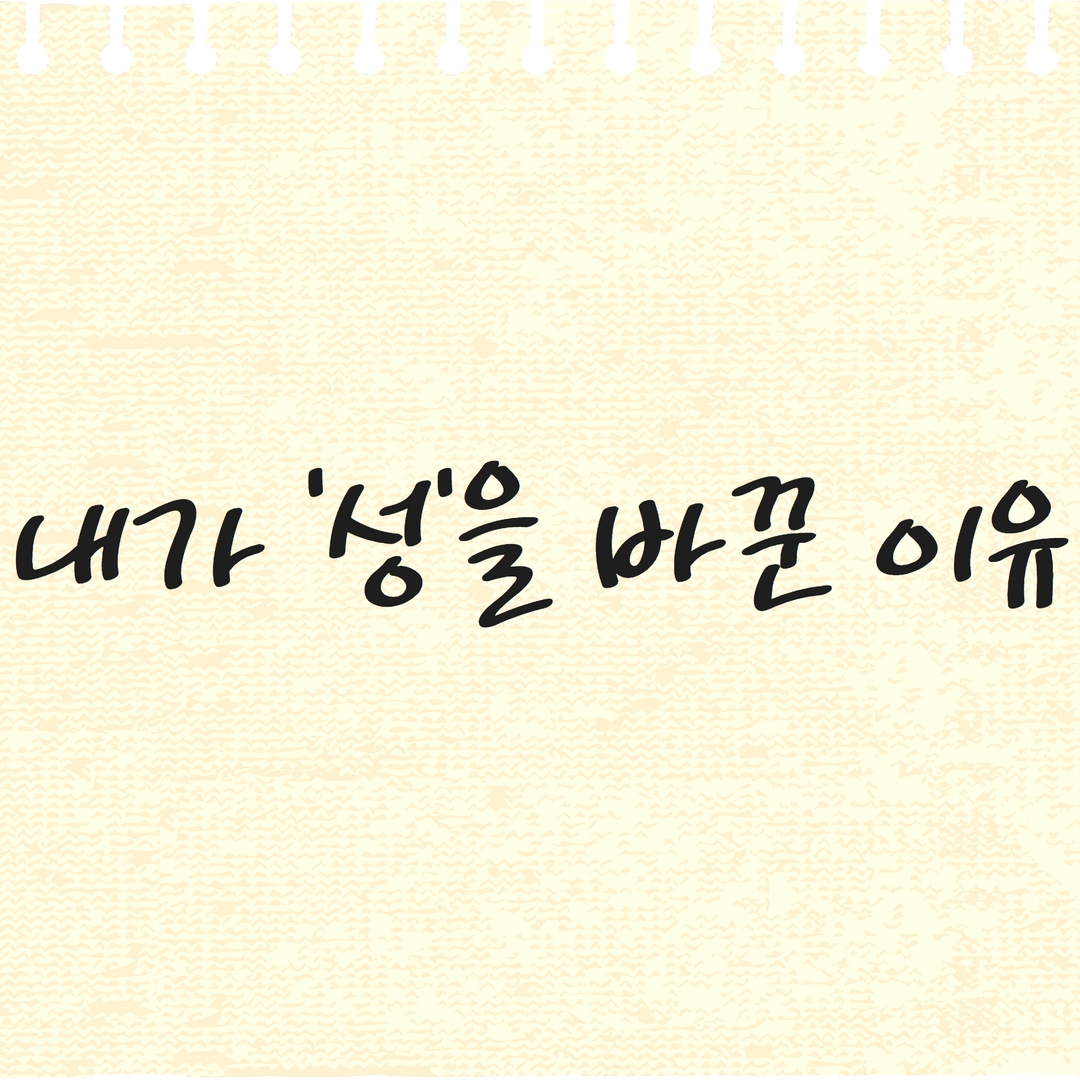 내가 '성'을 바꾼 이유